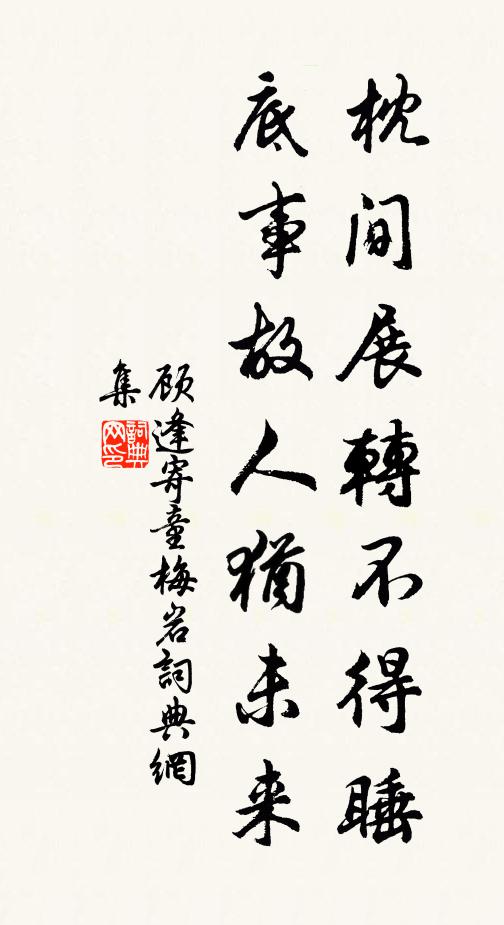 枕间展轉不得睡
底事故人猶未来
顾逢寄童梅岩詞典網
集
詞典网印